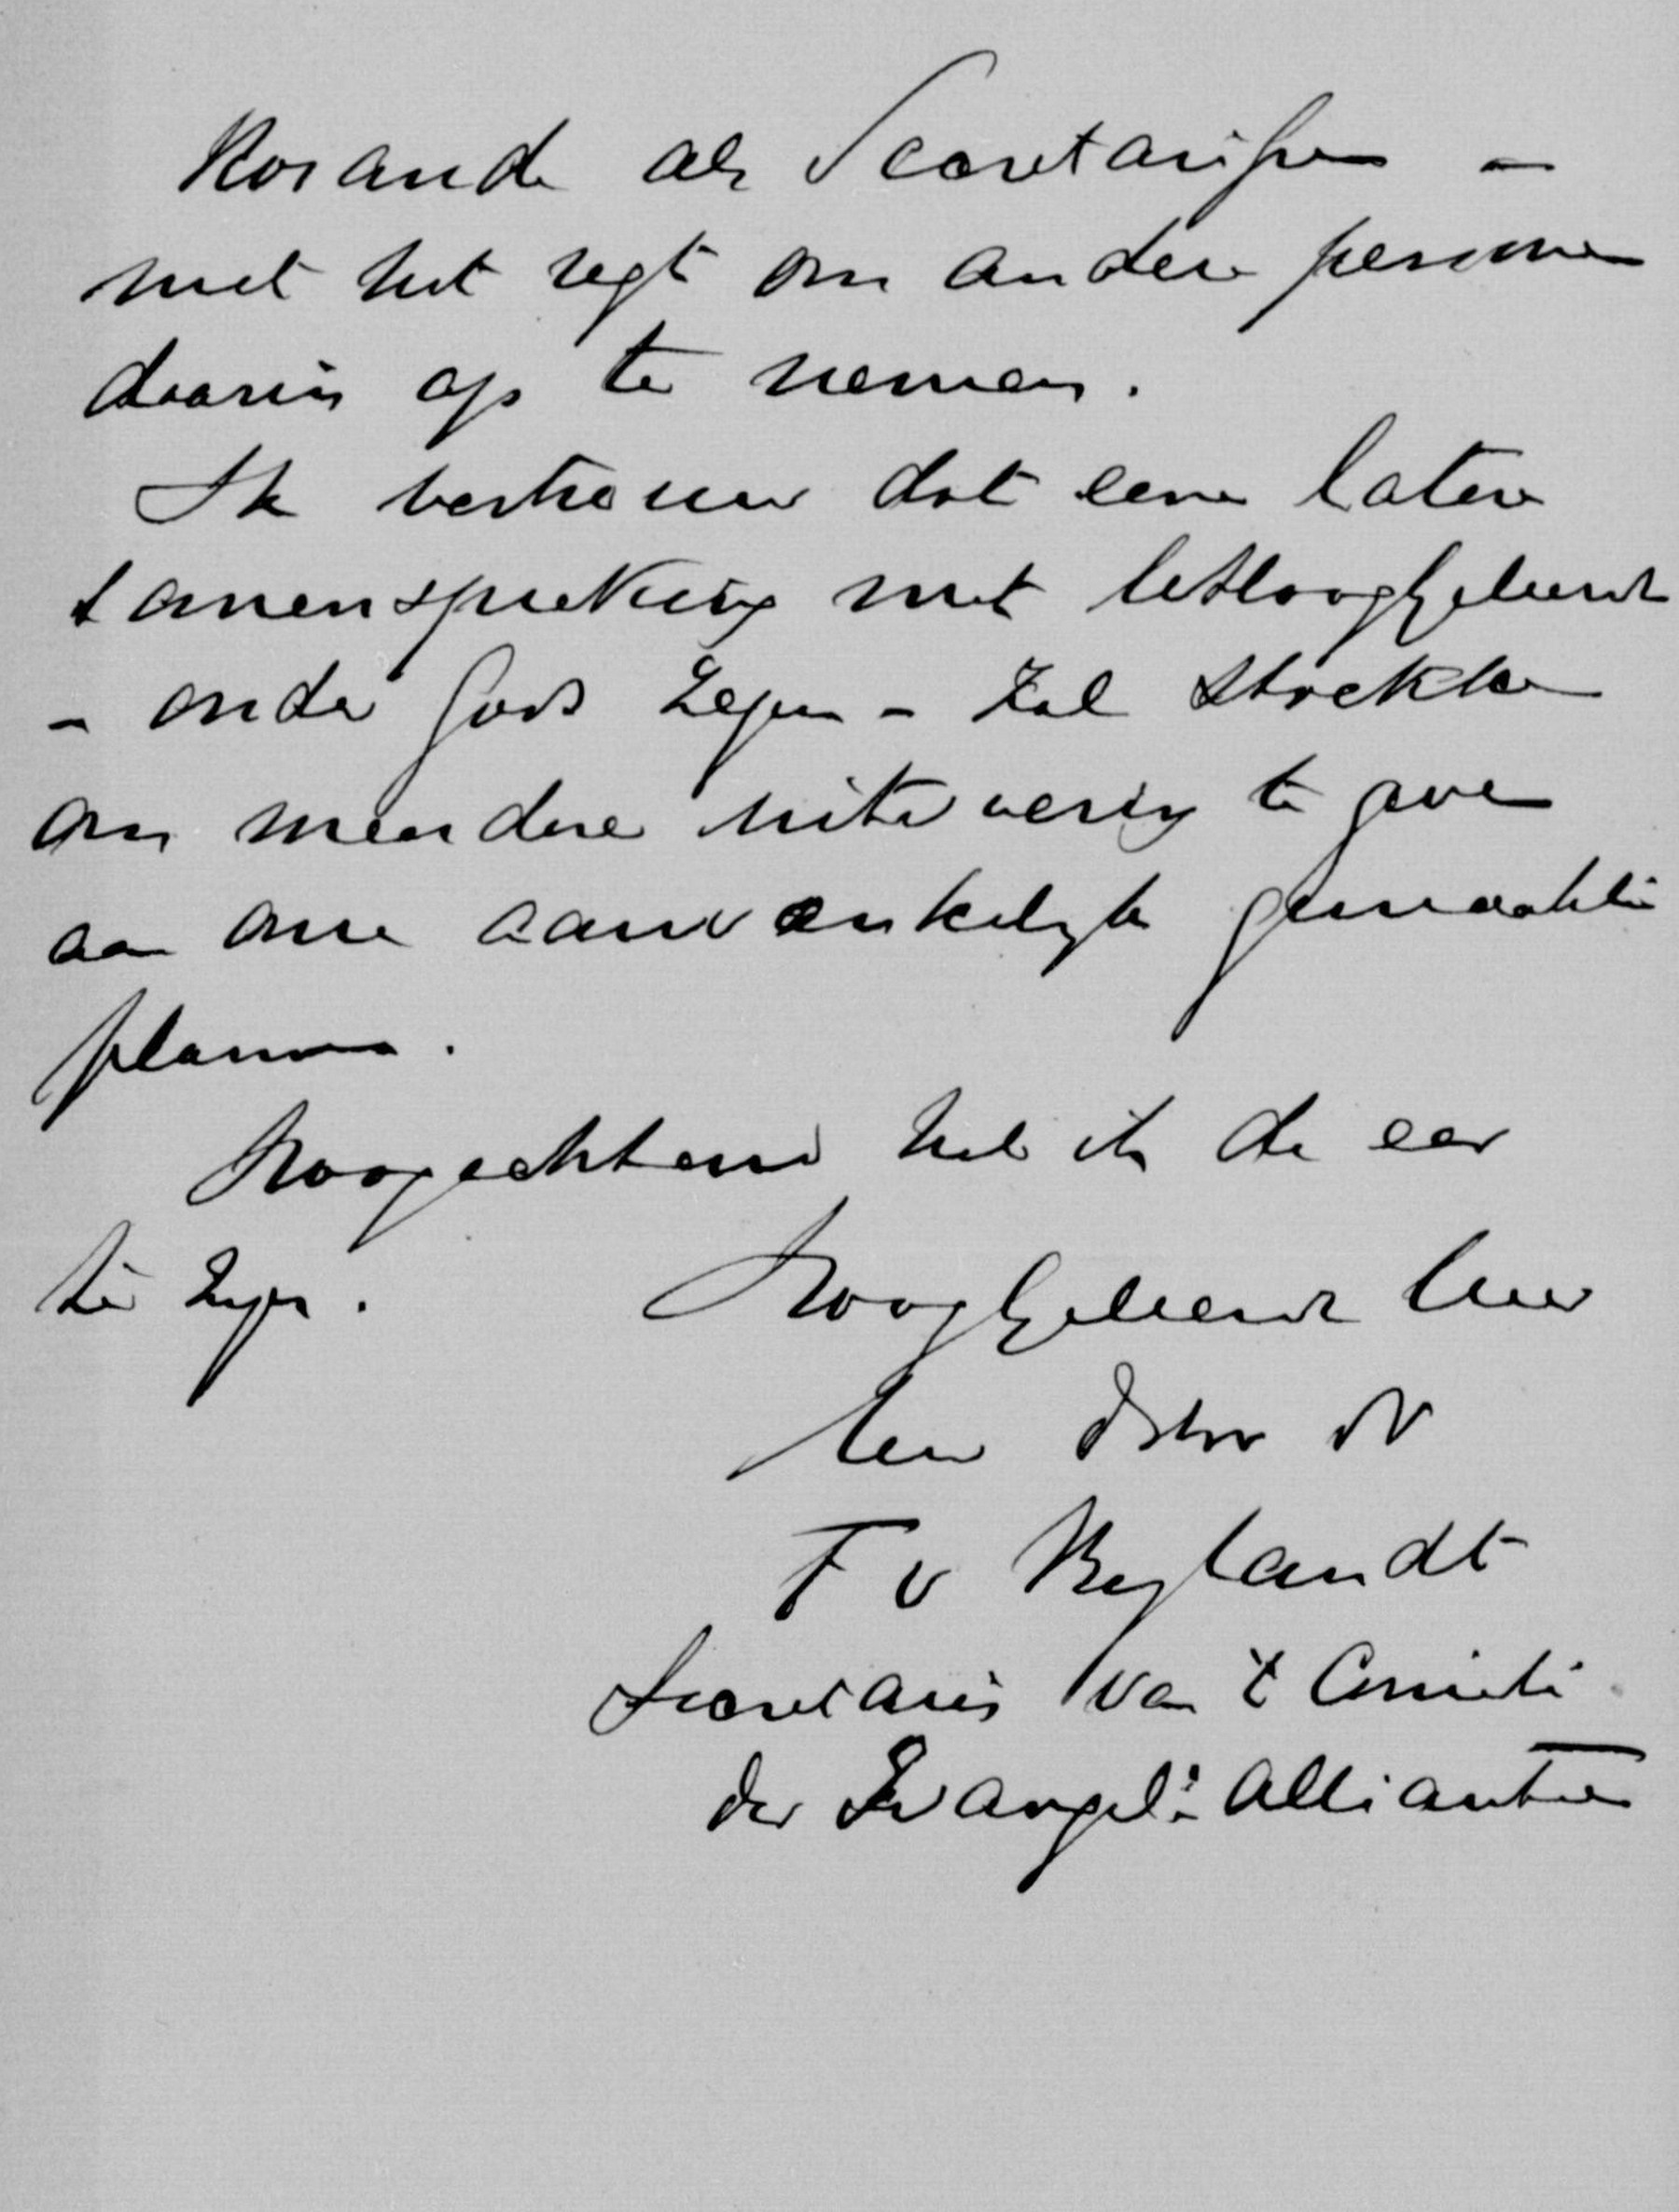 als Secretarissen -
met het regt om andere personen
daarin op te nemen.
Ik vertrouw dat eene latere
samenspreking met UHooggeleerde
- onder Gods Zegen - zal strekken
om meerdere uitvoering te geven
aan onze aanvankelijk gemaakte
plannen.
Hoogachtend heb ik de eer
te zijn. Hooggeleerde Heer
Uew Dstw Dr
F v Bylandt
Secretaris van 't Comité
der Evangel: Alliantie